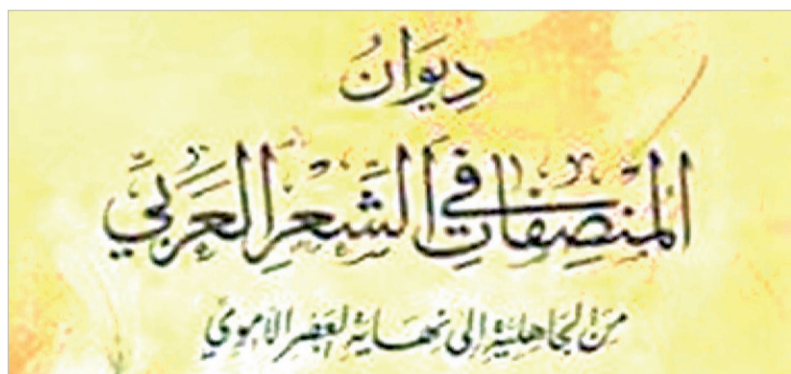 ديوان
المنصفات في الشعر العربي
من الجاهلية إلى نهاية العصر الأموي